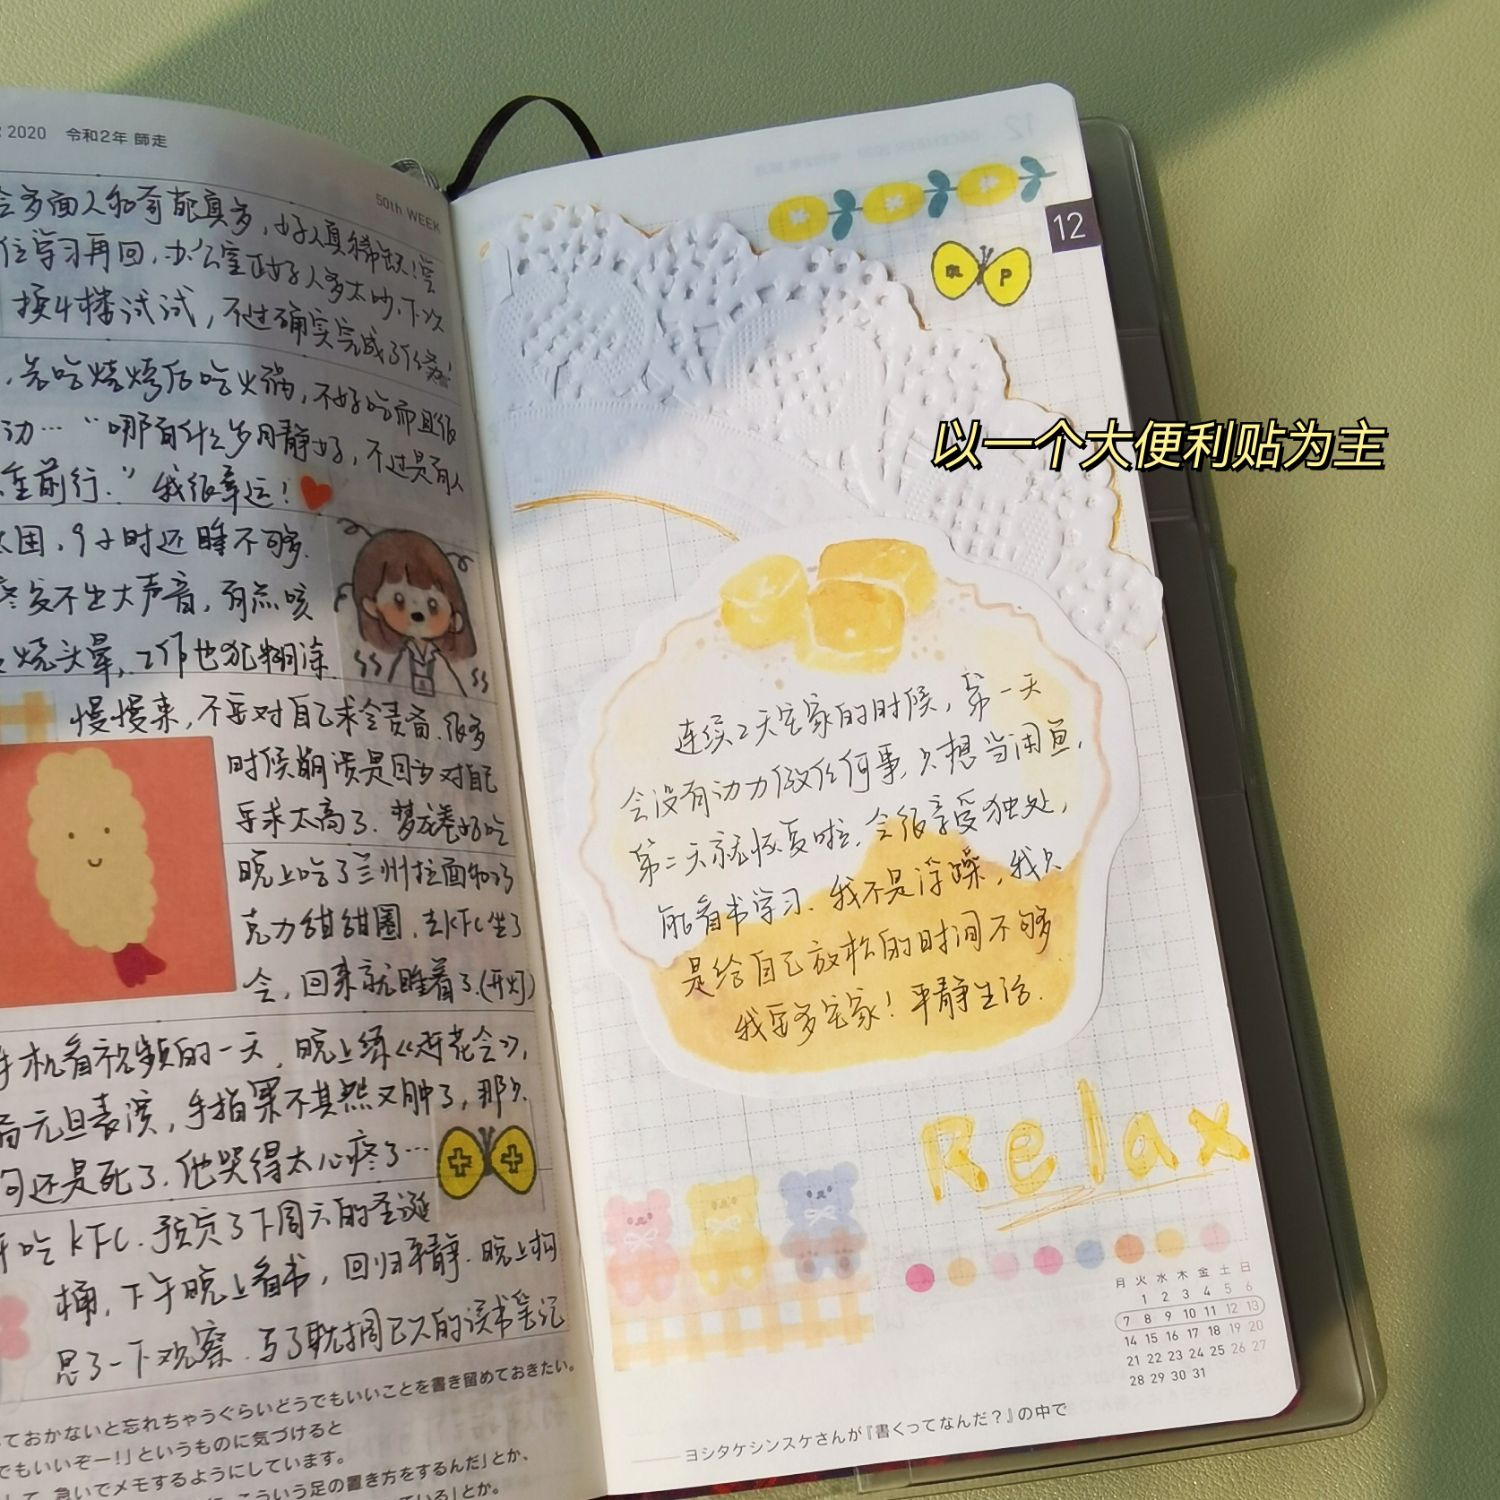 2020 令和2年 師走
50th WEEK
多面人和奇葩真多,好人真稀缺!
位学习再回,办公室正好人多太吵,下次
换4楼试试,不过确实完成了任务!
吃烧烤后吃火锅,不好吃而且很
动…“哪有什么岁月静好,不过是有人
重前行.”我很幸运!
困,9小时还睡不够.
发不出大声音,有点咳
烧头晕,工作也犯糊涂.
慢慢来,不要对自己求全责备.很多
时候崩溃是因为对自己
要求太高了.梦龙卷好吃
晚上吃了兰州拉面和巧
克力甜甜圈,去KFC坐了
会,回来就睡着了.(开灯)
手机看视频的一天,晚上练《莲花令》,
元旦表演,手指果不其然又肿了,那么
句还是死了.他哭得太心疼了…
吃KFC.预定了下周六的圣诞
桶,下午晚上看书,回归平静.晚上构
思了一下观察.写了耽搁已久的读书笔记
ておかないと忘れちゃうぐらいどうでもいいことを書き留めておきたい。
でもいいぞー!」というものに気づけると
急いでメモするようにしています。
こういう足の置き方をするんだ」とか、
ている」とか。
12
P
以一个大便利贴为主
连续2天宅家的时候,第一天
会没有动力做任何事,只想当闲鱼,
第二天就恢复啦.会很享受独处,
能看书学习.我不是浮躁,我只
是给自己放松的时间不够
我要多宅家!平静生活.
Relax
月 火 水 木 金 土 日
1 2 3 4 5 6
7 8 9 10 11 12 13
14 15 16 17 18 19 20
21 22 23 24 25 26 27
28 29 30 31
ヨシタケシンスケさんが『書くってなんだ?』の中で